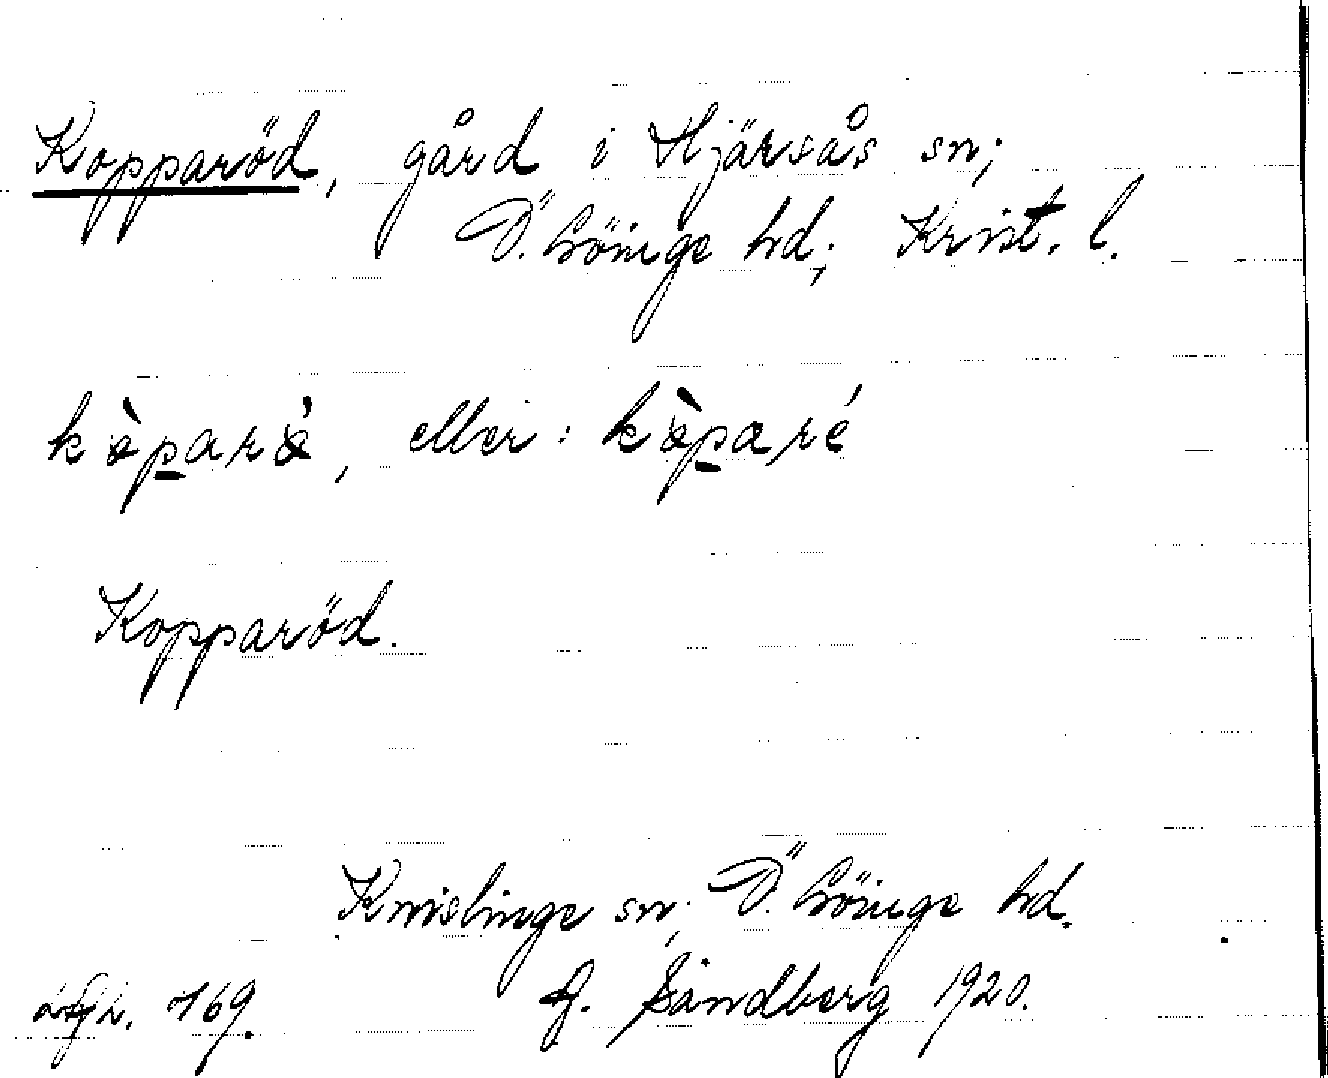 Kopparöd, gård i Hjärsås sn;
Ö. Göinge hd; Krist. l.
kòparè, eller: kòparé
Kopparöd.
Knislinge sn; Ö. Göinge hd.
169. Sandberg 1920.